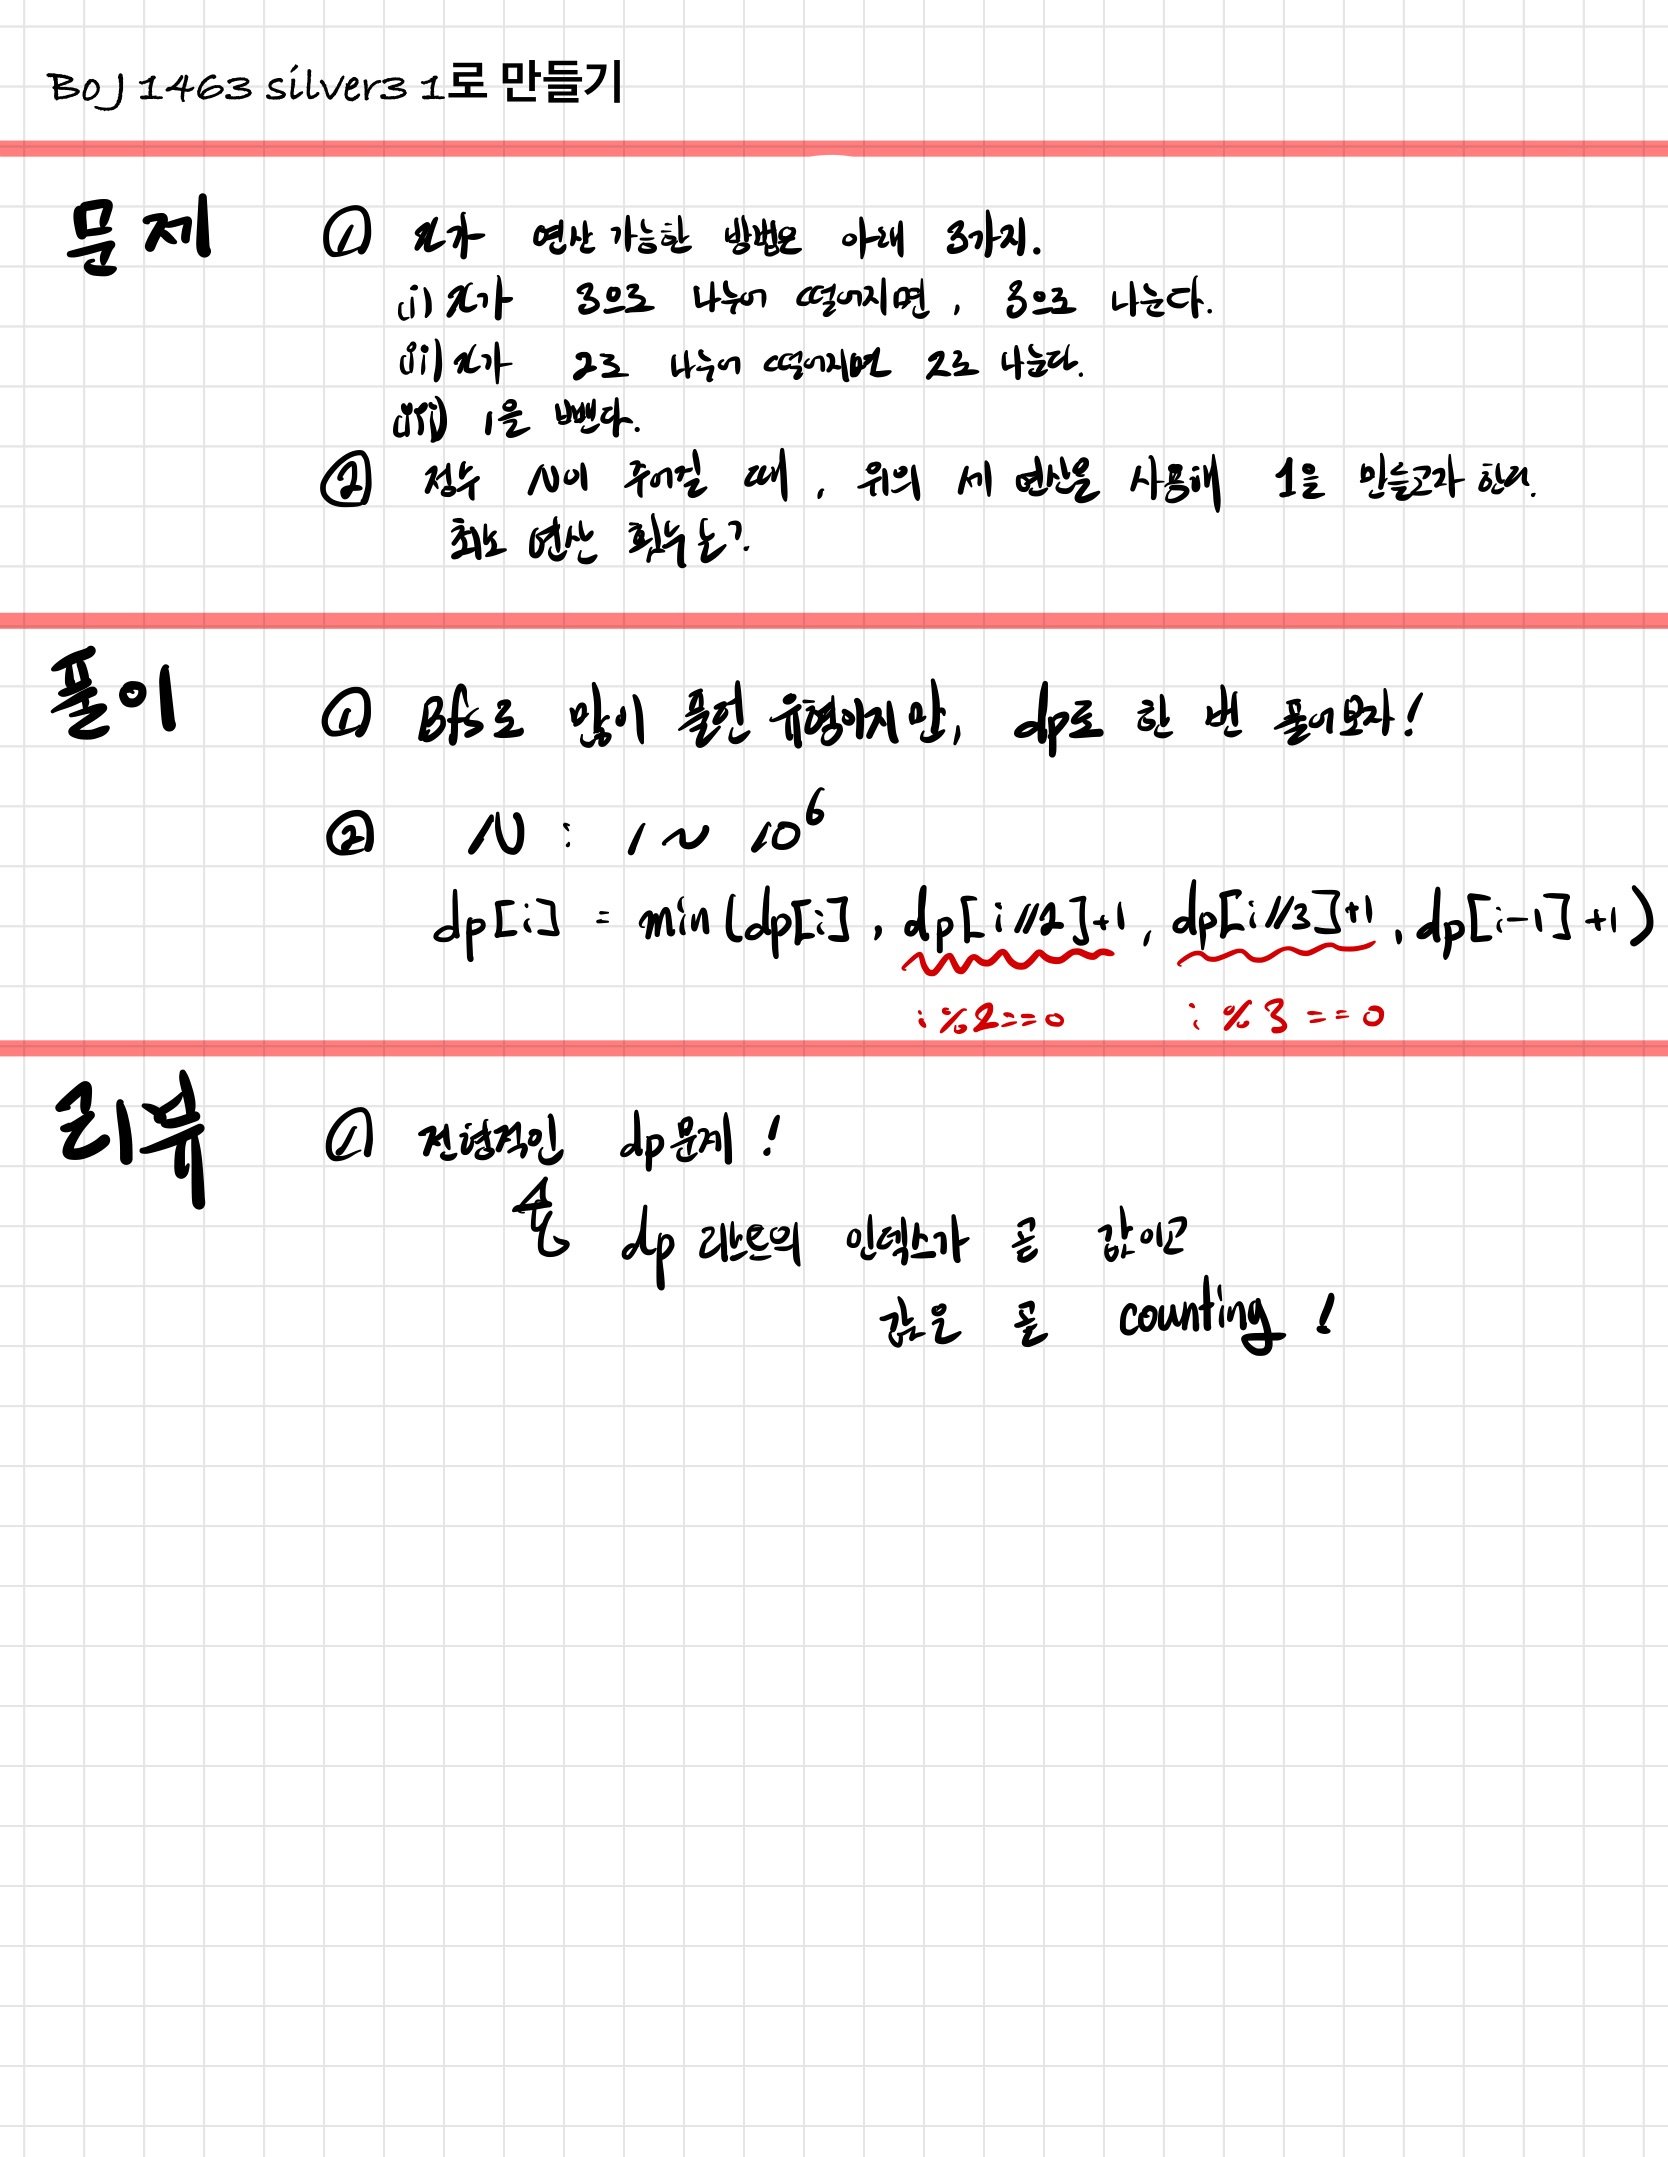 BOJ 1463 silver3 1로 만들기
문제
① x가 연산 가능한 방법은 아래 3가지.
(i) x가 3으로 나누어 떨어지면, 3으로 나눈다.
(ii) x가 2로 나누어 떨어지면 2로 나눈다.
(iii) 1을 뺀다.
② 정수 N이 주어질 때, 위의 세 연산을 사용해 1을 만들고자 한다.
최소 연산 횟수는?
풀이
① Bfs로 많이 풀던 유형이지만, dp로 한 번 풀어보자!
② N : 1 ~ 10⁶
dp[i] = min(dp[i], dp[i//2]+1, dp[i//3]+1, dp[i-1]+1)
i%2==0 i%3==0
리뷰
① 전형적인 dp문제!
dp 리스트의 인덱스가 곧 값이고
값은 곧 counting!